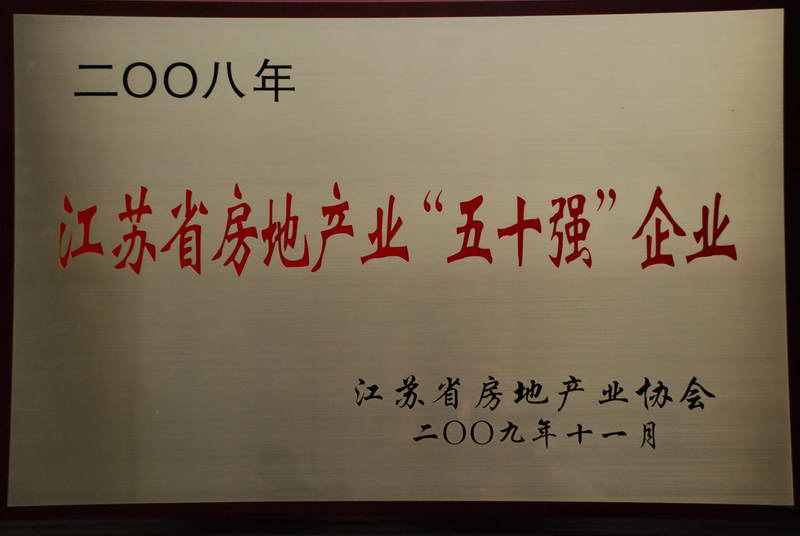 二〇〇八年
江苏省房地产业“五十强”企业
江苏省房地产业协会
二〇〇九年十一月